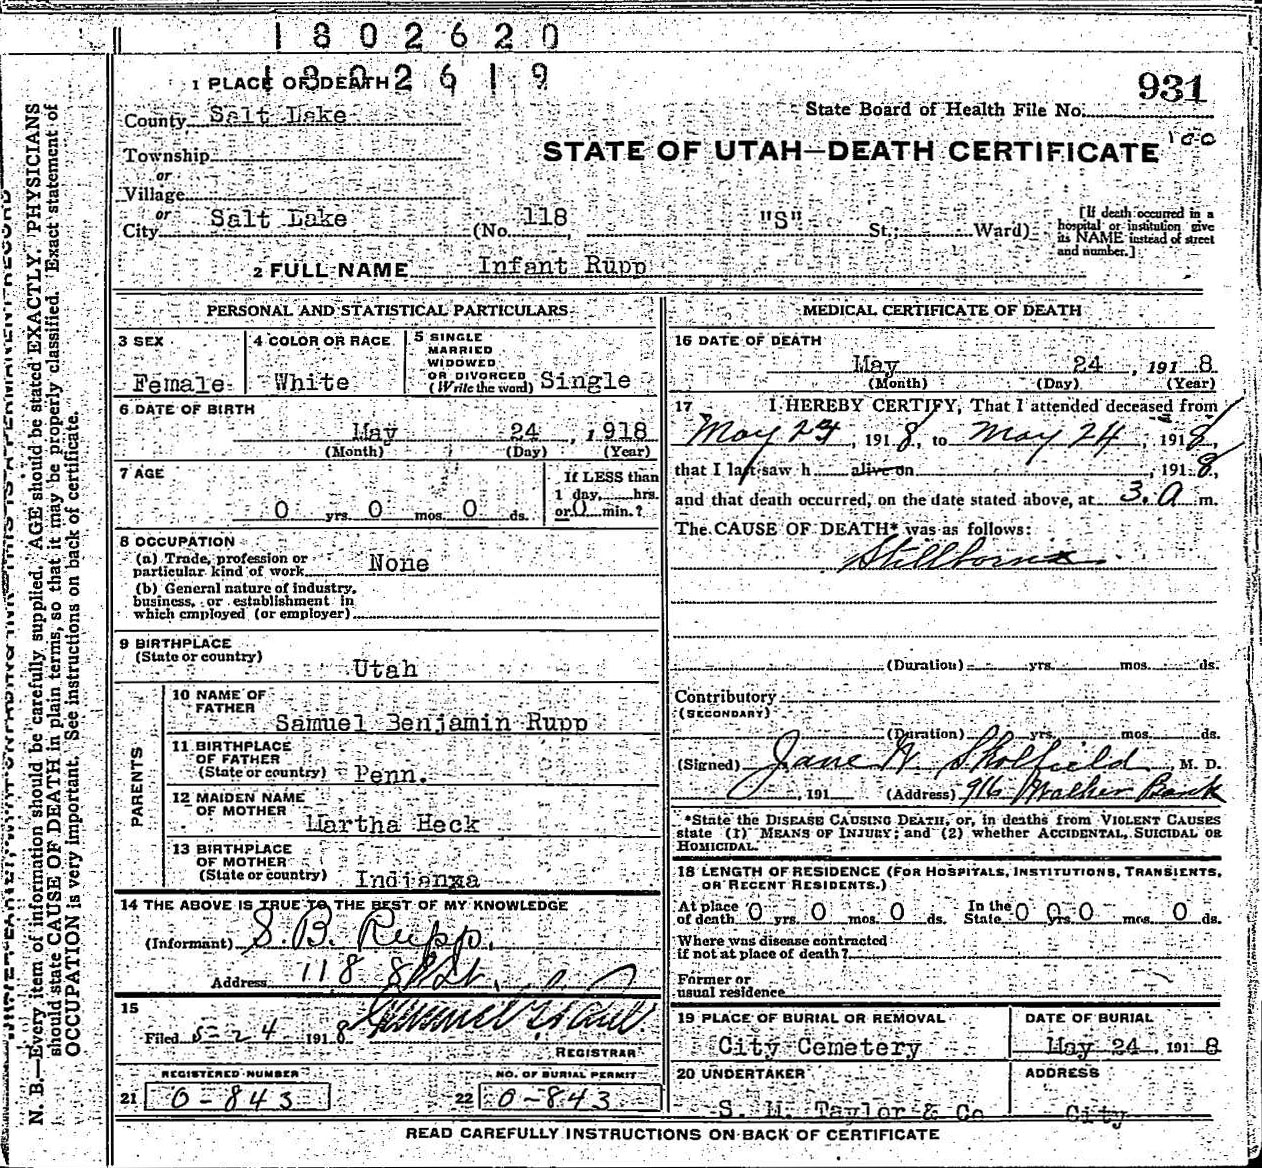 1802620
1802619
1 PLACE OF DEATH
931
State Board of Health File No.
County Salt Lake
100
STATE OF UTAH—DEATH CERTIFICATE
Township
or
Village
or
City Salt Lake (No. 118 "S" St.; Ward)
[If death occurred in a
hospital or institution give
its NAME instead of street
and number.]
2 FULL NAME Infant Rupp
PERSONAL AND STATISTICAL PARTICULARS
3 SEX
Female
4 COLOR OR RACE
White
5 SINGLE
MARRIED
WIDOWED
OR DIVORCED
(Write the word) Single
6 DATE OF BIRTH
May 24, 1918
(Month) (Day) (Year)
7 AGE
0 yrs. 0 mos. 0 ds.
If LESS than
1 day, hrs.
or 0 min.?
8 OCCUPATION
(a) Trade, profession or
particular kind of work None
(b) General nature of industry,
business, or establishment in
which employed (or employer)
9 BIRTHPLACE
(State or country)
Utah
PARENTS
10 NAME OF
FATHER
Samuel Benjamin Rupp
11 BIRTHPLACE
OF FATHER
(State or country) Penn.
12 MAIDEN NAME
OF MOTHER
Martha Heck
13 BIRTHPLACE
OF MOTHER
(State or country) Indianxa
14 THE ABOVE IS TRUE TO THE BEST OF MY KNOWLEDGE
(Informant) S. B. Rupp.
Address 118 S St.
15
Filed 5-24 1918
REGISTRAR
REGISTERED NUMBER
21 0-843
NO. OF BURIAL PERMIT
22 0-843
MEDICAL CERTIFICATE OF DEATH
16 DATE OF DEATH
May 24, 1918
(Month) (Day) (Year)
17 I HEREBY CERTIFY, That I attended deceased from
May , 1918, to May 24, 1918,
that I last saw h alive on , 1918,
and that death occurred, on the date stated above, at 3. a m.
The CAUSE OF DEATH* was as follows:
Stillborn
(Duration) yrs. mos. ds.
Contributory
(SECONDARY)
(Duration) yrs. mos. ds.
(Signed) Jane W Skolfield, M. D.
, 191 (Address) 916 Walker Bank
*State the DISEASE CAUSING DEATH, or, in deaths from VIOLENT CAUSES
state (1) MEANS OF INJURY; and (2) whether ACCIDENTAL, SUICIDAL OR
HOMICIDAL.
18 LENGTH OF RESIDENCE (FOR HOSPITALS, INSTITUTIONS, TRANSIENTS,
OR RECENT RESIDENTS.)
At place In the
of death 0 yrs. 0 mos. 0 ds. State 0 0 yrs. 0 mos. 0 ds.
Where was disease contracted
if not at place of death?
Former or
usual residence
19 PLACE OF BURIAL OR REMOVAL
City Cemetery
DATE OF BURIAL
May 24, 1918
20 UNDERTAKER
S. M. Taylor & Co
ADDRESS
City
READ CAREFULLY INSTRUCTIONS ON BACK OF CERTIFICATE
N. B.—Every item of information should be carefully supplied. AGE should be stated EXACTLY. PHYSICIANS
should state CAUSE OF DEATH in plain terms, so that it may be properly classified. Exact statement of
OCCUPATION is very important. See instructions on back of certificate.